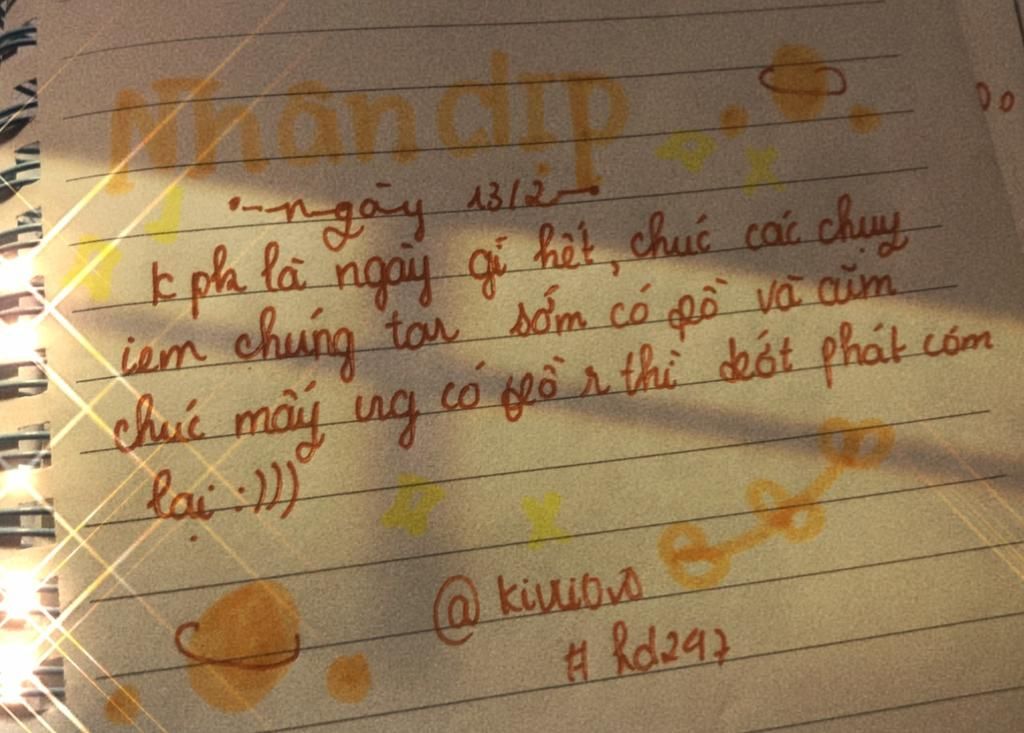 Nhân dịp
ngày 13/2
k ph là ngày gì hết, chúc các chụy
iem chúng ta sớm có bồ và cũm
chúc mấy ng có bồ r thì đớt phát cóm
lại :)))
@kiuiovo
# hd297